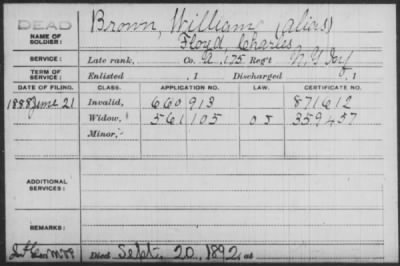 DEAD
Brown, William (alias)
NAME OF SOLDIER: Floyd, Charles
SERVICE: Late rank, Co. A, 175 Reg't N.Y. Inf
TERM OF SERVICE: Enlisted , 1 Discharged , 1
DATE OF FILING. CLASS. APPLICATION NO. LAW. CERTIFICATE NO.
1888 June 21 Invalid, 660913 871612
Widow, 561105 OS 359457
Minor,
ADDITIONAL SERVICES:
REMARKS:
Died Sept. 20, 1892, at